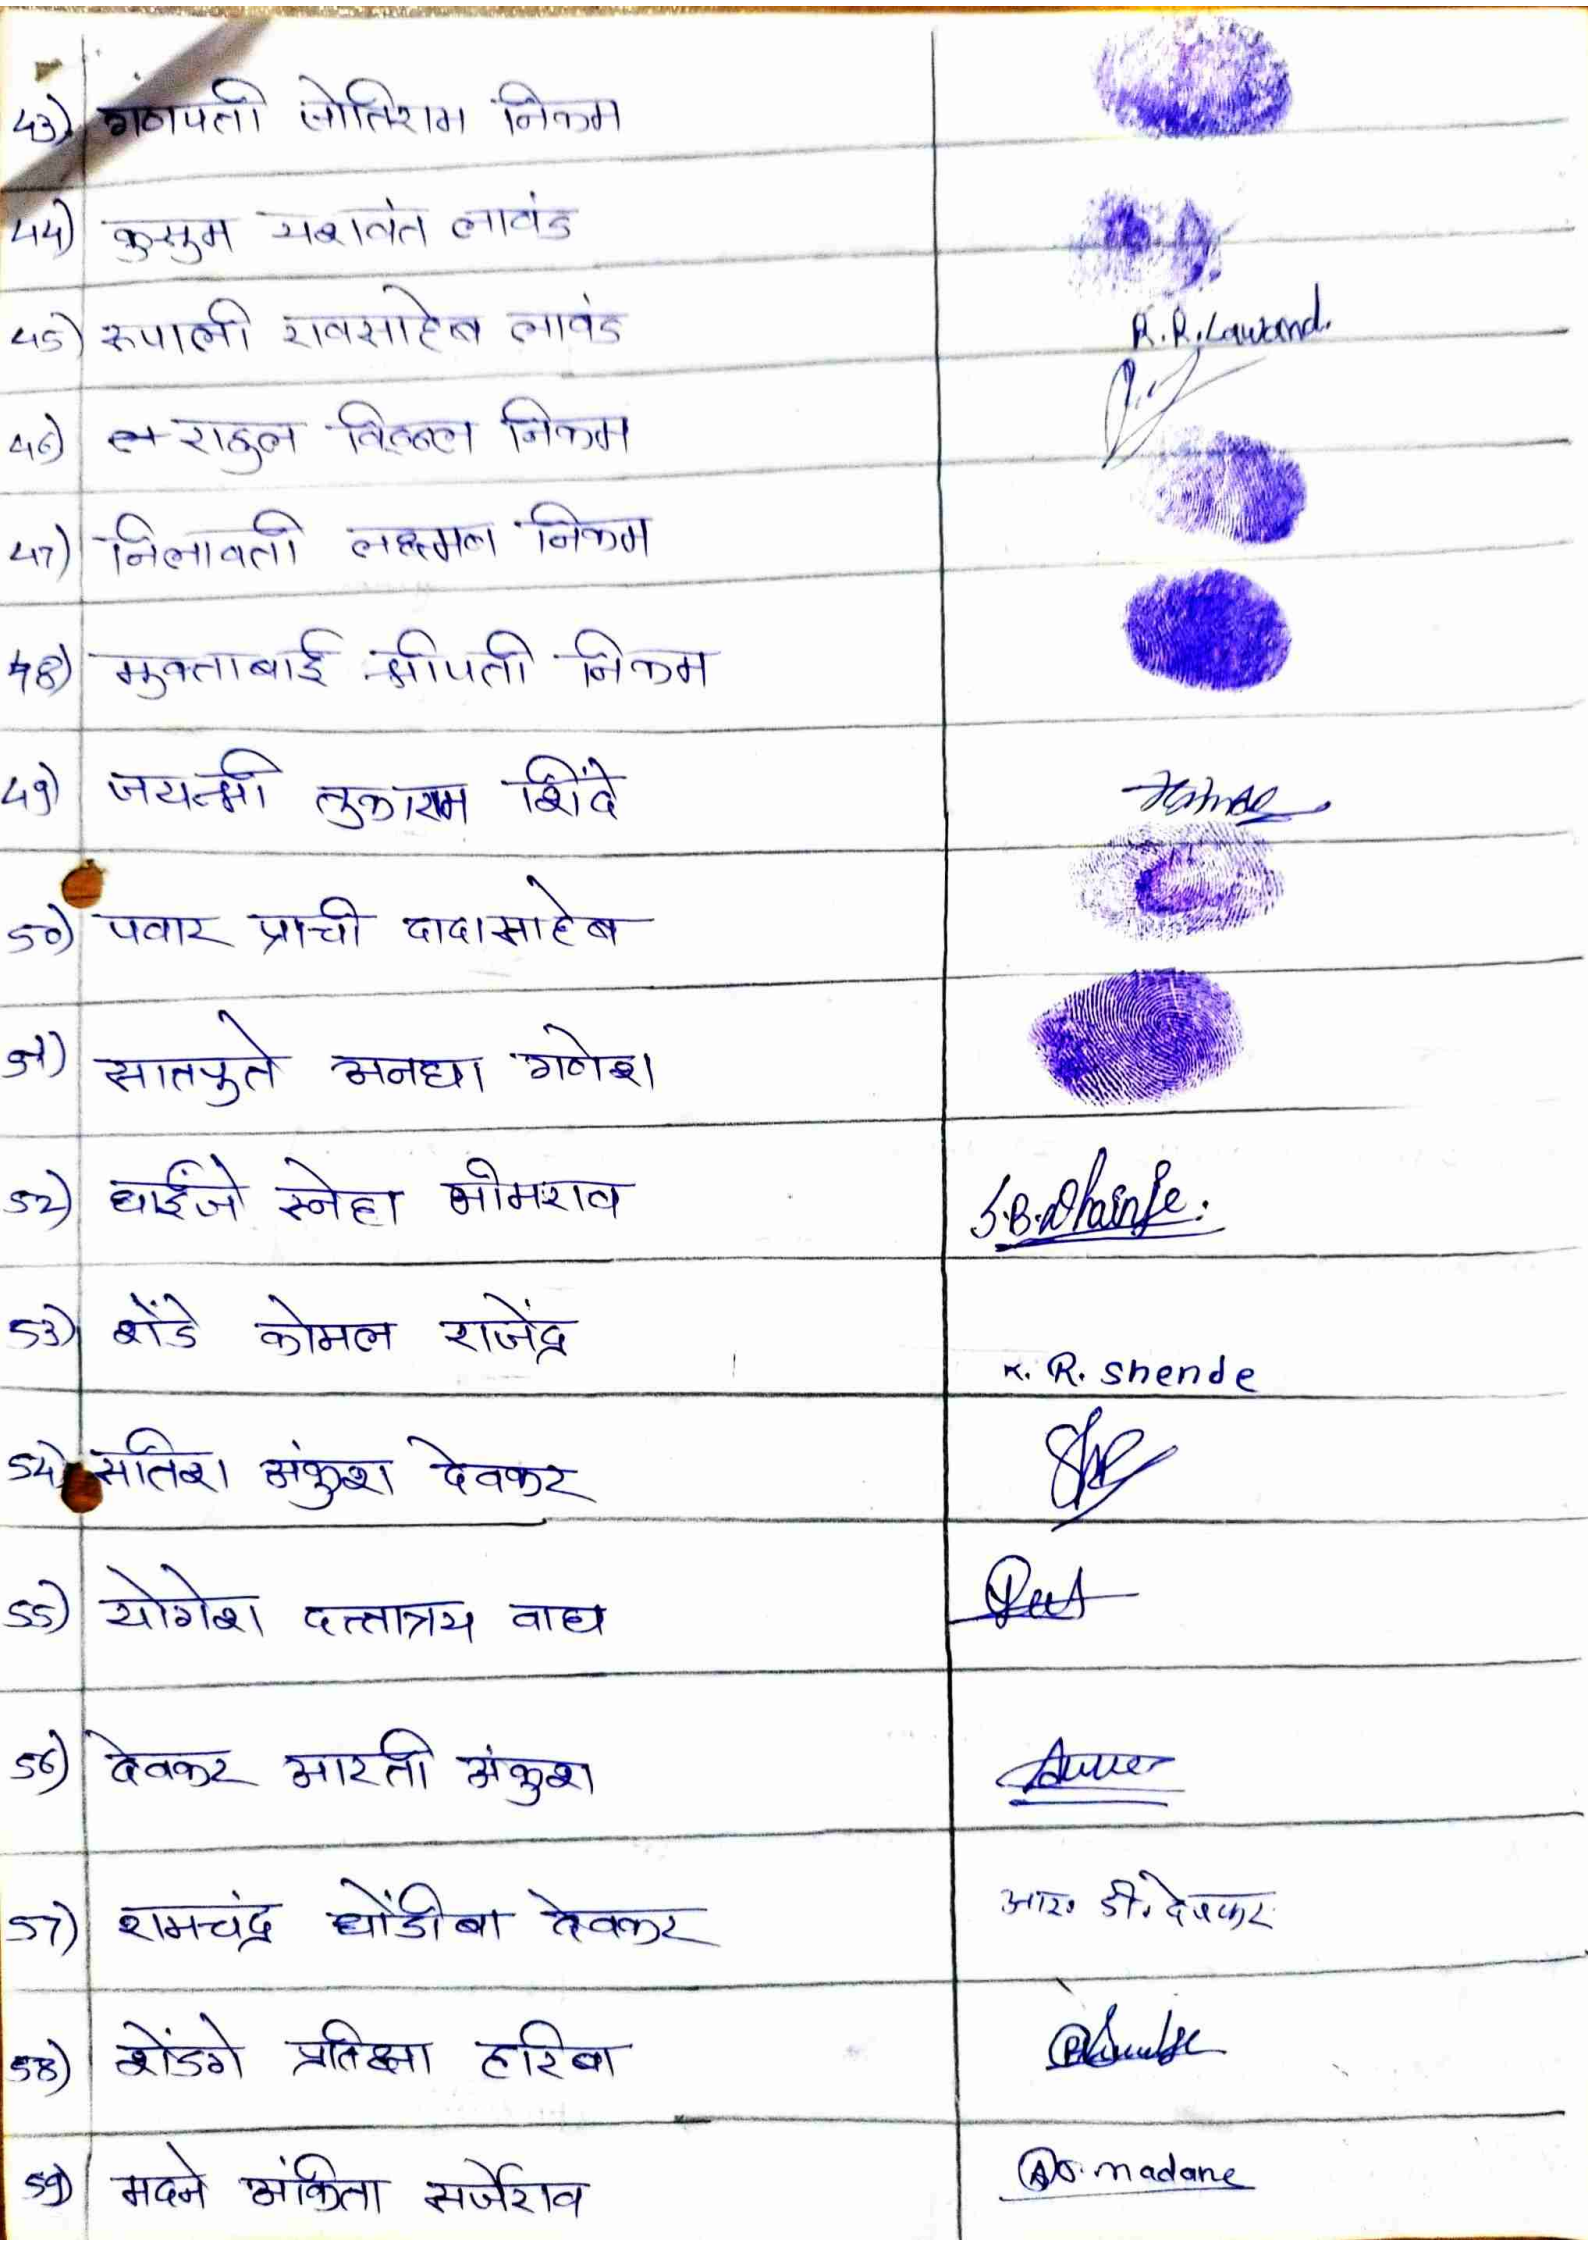 43) गणपती जोतिराम निकम
44) कुसुम यशवंत लावंड
45) रुपाली रावसाहेब लावंड R.R.Lawand.
46) राहुल विठ्ठल निकम
47) निलावती लक्ष्मण निकम
48) मुक्ताबाई श्रीपती निकम
49) जयश्री तुकाराम शिंदे
50) पवार प्राची दादासाहेब
51) सातपुते अनघा गणेश
52) घाईंजे स्नेहा भीमराव S.B.Dhainje.
53) शेंडे कोमल राजेंद्र K. R. Shende
54) सतिश अंकुश देवकर
55) योगेश दत्तात्रय वाघ
56) देवकर आरती अंकुश
57) रामचंद्र धोंडीबा देवकर आर. डी. देवकर
58) शेंडगे प्रतिक्षा हरिबा
59) मदने अंकिता सर्जेराव A.S. madane